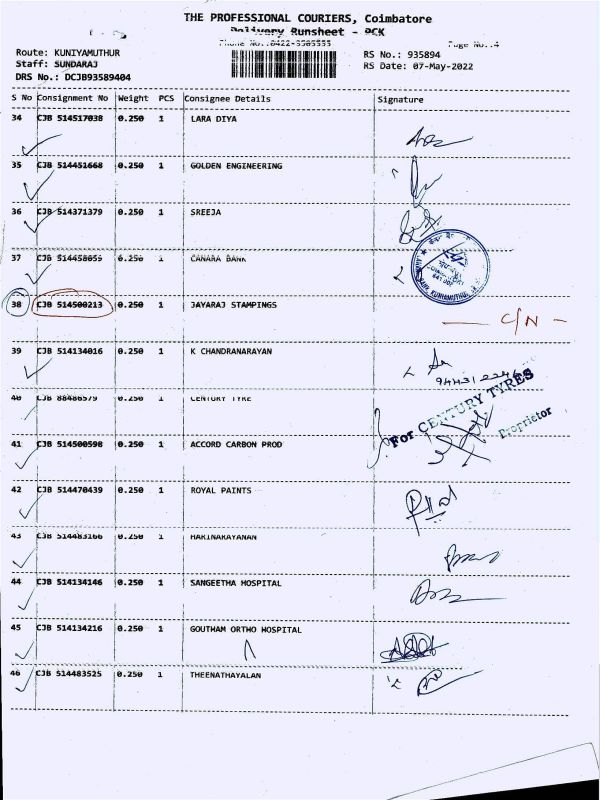 THE PROFESSIONAL COURIERS, Coimbatore
Delivery Runsheet - PCK
Phone No.:0422-3505555 Page No.:4
Route: KUNIYAMUTHUR RS No.: 935894
Staff: SUNDARAJ RS Date: 07-May-2022
DRS No.: DCJB93589404
S No Consignment No Weight PCS Consignee Details Signature
34 CJB 514517038 0.250 1 LARA DIYA
35 CJB 514451668 0.250 1 GOLDEN ENGINEERING
36 CJB 514371379 0.250 1 SREEJA
37 CJB 1 CANARA BANK
38 CJB 514500213 0.250 1 JAYARAJ STAMPINGS
— C/N -
39 CJB 514134016 0.250 1 K CHANDRANARAYAN
40 CJB 88486579 0.250 1 CENTURY TYRE
For CENTURY TYRES
Proprietor
41 CJB 514500598 0.250 1 ACCORD CARBON PROD
42 CJB 514470439 0.250 1 ROYAL PAINTS
43 CJB 514483166 0.250 1 HARINARAYANAN
44 CJB 514134146 0.250 1 SANGEETHA HOSPITAL
45 CJB 514134216 0.250 1 GOUTHAM ORTHO HOSPITAL
46 CJB 514483525 0.250 1 THEENATHAYALAN